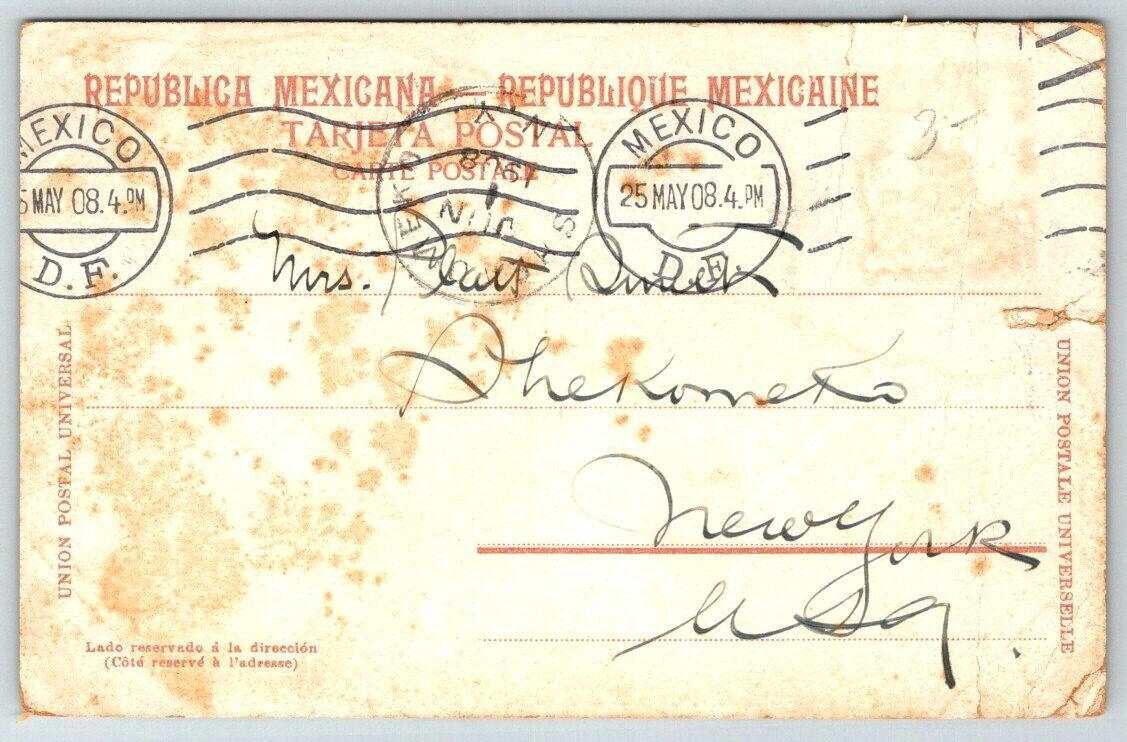 REPUBLICA MEXICANA — REPUBLIQUE MEXICAINE
TARJETA POSTAL
CARTE POSTALE
3-
MEXICO
5 MAY 08.4.PM
D.F.
MEXICO
25 MAY 08.4.PM
D.F.
SHEKOMEKO
JUN
1
1908
N.Y.
Mrs.
Shekomeko
New York
USA.
UNION POSTAL UNIVERSAL
UNION POSTALE UNIVERSELLE
Lado reservado á la dirección
(Côté reservé à l'adresse)